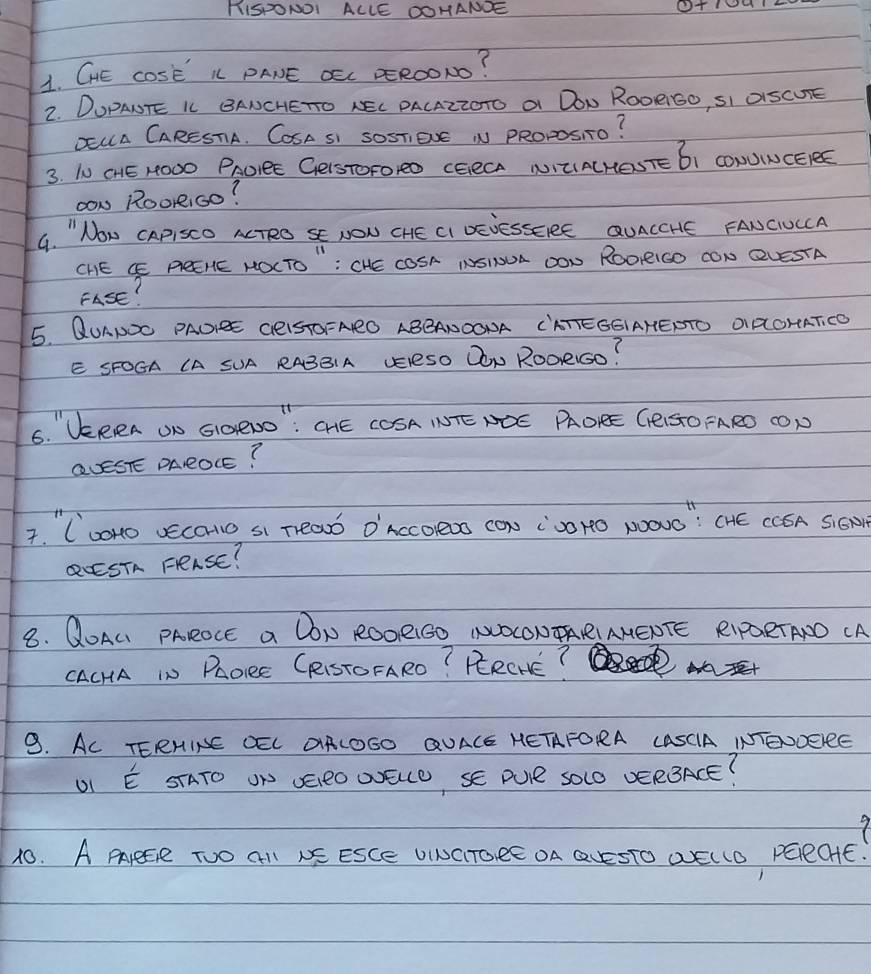 RISPONDI ALLE DOMANDE
1. CHE COS'È IL PANE DEL PERDONO?
2. DURANTE IL BANCHETTO NEL PALAZZOTO DI DON RODRIGO, SI DISCUTE
DELLA CARESTIA. COSA SI SOSTIENE IN PROPOSITO?
3. IN CHE MODO PADRE CRISTOFORO CERCA INIZIALMENTE DI CONVINCERE
DON RODRIGO?
4. "NON CAPISCO ALTRO SE NON CHE CI DEV'ESSERE QUALCHE FANCIULLA
CHE LE PREME MOLTO": CHE COSA INSINUA DON RODRIGO CON QUESTA
FASE?
5. QUANDO PADRE CRISTOFARO ABBANDONA L'ATTEGGIAMENTO DIPLOMATICO
E SFOGA LA SUA RABBIA VERSO DON RODRIGO?
6. "VERRA UN GIORNO": CHE COSA INTENDE PADRE CRISTOFARO CON
QUESTE PAROLE?
7. "L'UOMO VECCHIO SI TROVÒ D'ACCORDO CON L'UOMO NUOVO": CHE COSA
QUESTA FRASE?
8. QUALI PAROLE DI DON RODRIGO INVOLONTARIAMENTE RIPORTANO LA
CALMA IN PADRE CRISTOFARO? PERCHÉ?
9. AL TERMINE DEL DIALOGO QUALE METAFORA LASCIA INTENDERE
VI È STATO UN VERO DUELLO, SE PUR SOLO VERBALE?
10. A PARER TUO CHI NE ESCE VINCITORE DA QUESTO DUELLO, PERCHE?